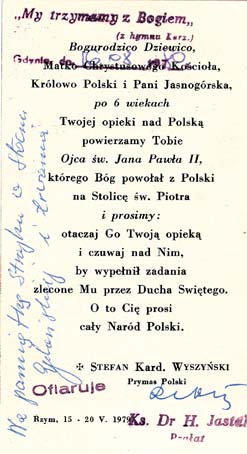 „My trzymamy z Bogiem„
(z hymnu Kurz.)
Bogurodzico Dziewico,
Gdynia, dn.
Matko Chrystusowego Kościoła,
Królowo Polski i Pani Jasnogórska,
po 6 wiekach
Twojej opieki nad Polską
powierzamy Tobie
Ojca św. Jana Pawła II,
którego Bóg powołał z Polski
na Stolicę św. Piotra
i prosimy:
otaczaj Go Twoją opieką
i czuwaj nad Nim,
by wypełnił zadania
zlecone Mu przez Ducha Świętego.
O to Cię prosi
cały Naród Polski.
✠ STEFAN Kard. WYSZYŃSKI
Prymas Polski
Ofiaruje
Rzym, 15 - 20 V. 1979
Ks. Dr H. Jastak
Prałat
Na pamiątkę Strajku w Stoczni
Gdańskiej i